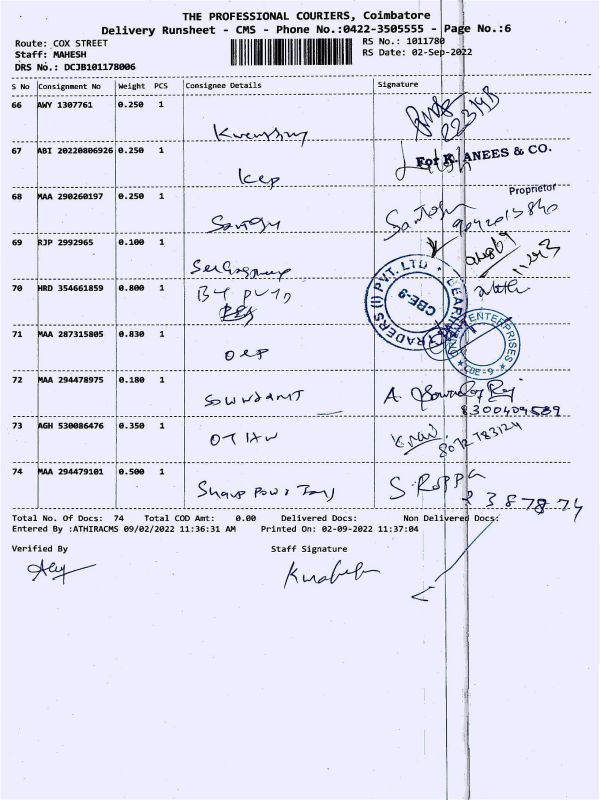 THE PROFESSIONAL COURIERS, Coimbatore
Delivery Runsheet - CMS - Phone No.:0422-3505555 - Page No.:6
Route: COX STREET
RS No.: 1011780
Staff: MAHESH
RS Date: 02-Sep-2022
DRS No.: DCJB101178006
S No Consignment No Weight PCS Consignee Details Signature
66 AWY 1307761 0.250 1
22314B
67 ABI 20220806926 0.250 1
For K. ANEES & CO.
KCP
Proprietor
68 MAA 290260197 0.250 1
Santosh
9042015840
69 RJP 2992965 0.100 1
70 HRD 354661859 0.800 1
TRADERS (I) PVT. LTD
CBE-9
ENTERPRISES
CBE-9
71 MAA 287315805 0.830 1
OEP
72 MAA 294478975 0.180 1
A. Soundar Raj
8300409589
73 AGH 530086476 0.350 1
8072783124
74 MAA 294479101 0.500 1
S. ROPPA
2387874
Total No. Of Docs: 74 Total COD Amt: 0.00 Delivered Docs: Non Delivered Docs:
Entered By :ATHIRACMS 09/02/2022 11:36:31 AM Printed On: 02-09-2022 11:37:04
Verified By Staff Signature